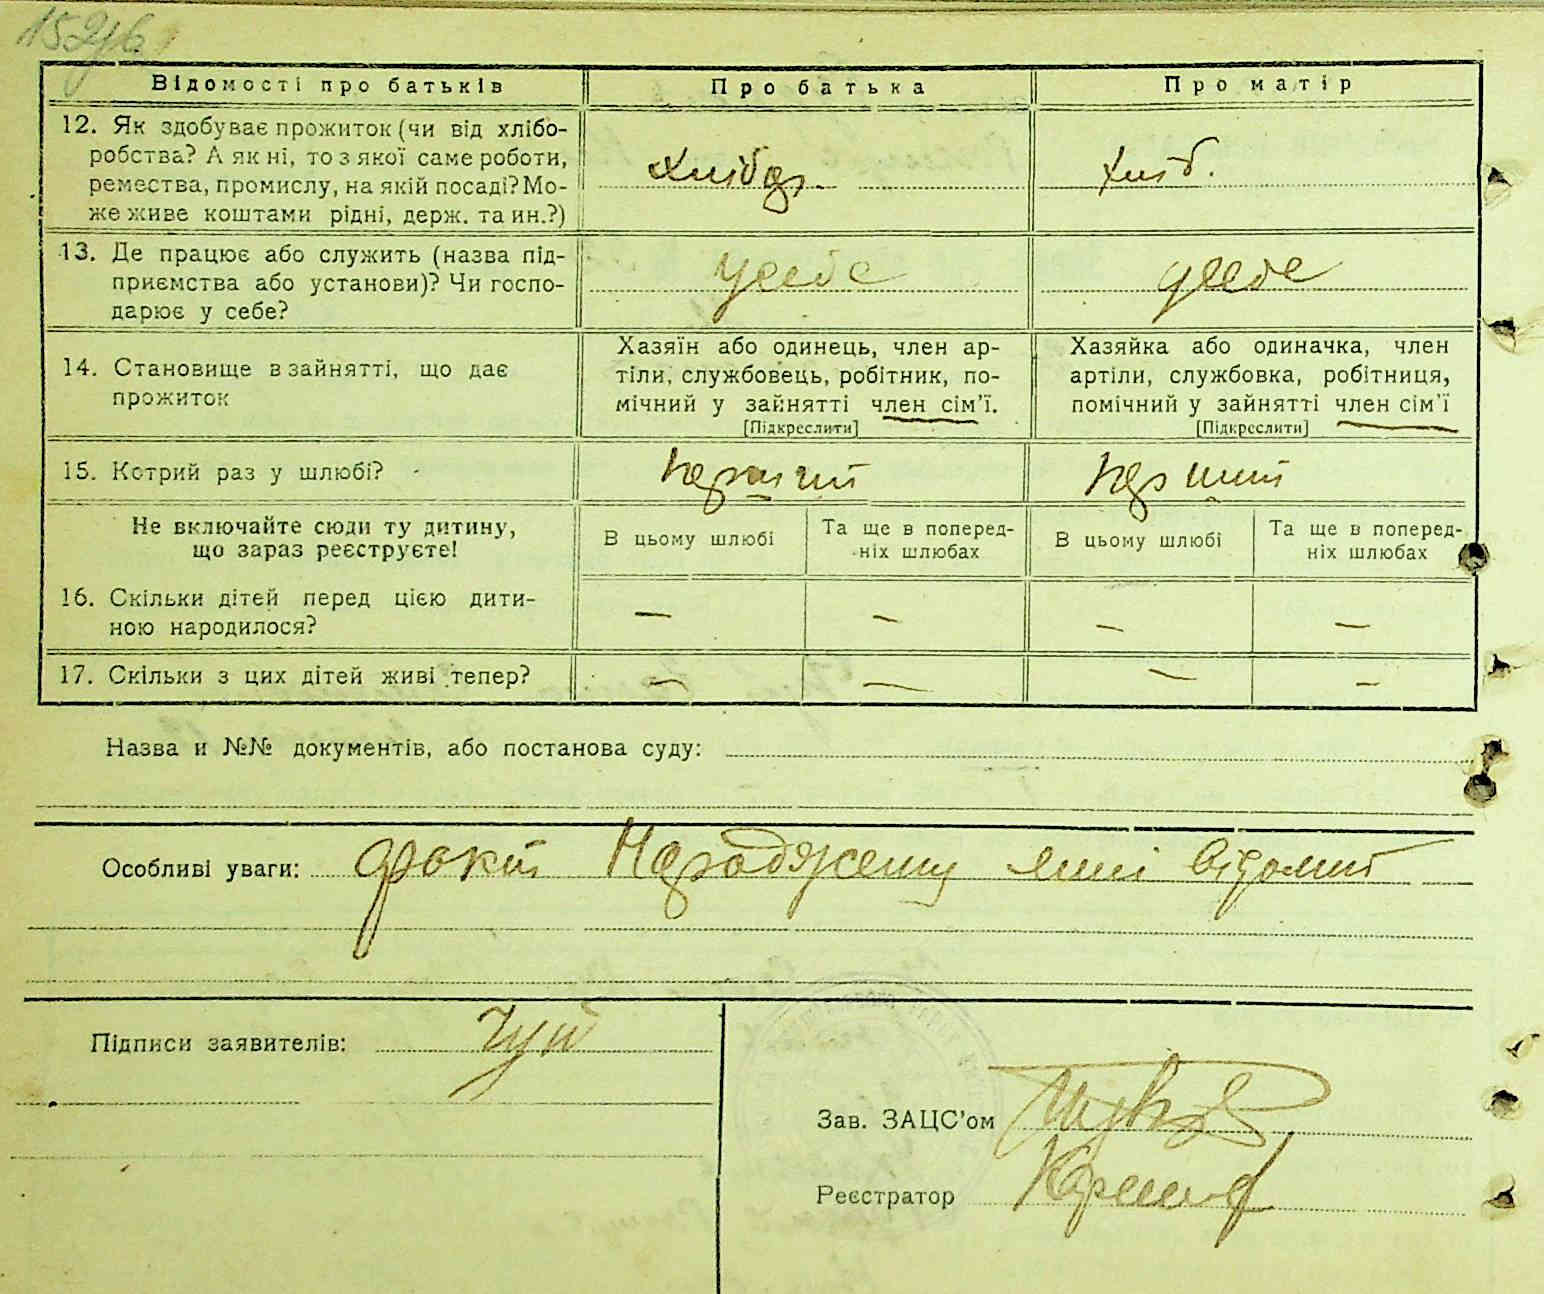 152/6
Відомості про батьків Про батька Про матір
12. Як здобуває прожиток (чи від хлібо-
робства? А як ні, то з якої саме роботи,
ремества, промислу, на якій посаді? Мо-
же живе коштами рідні, держ. та ин.?)
хлібор. хліб.
13. Де працює або служить (назва під-
приємства або установи)? Чи госпо-
дарює у себе?
у себе у себе
14. Становище в зайнятті, що дає
прожиток
Хазяїн або одинець, член ар-
тіли, службовець, робітник, по-
мічний у зайнятті член сім’ї.
[Підкреслити]
Хазяйка або одиначка, член
артіли, службовка, робітниця,
помічний у зайнятті член сім’ї
[Підкреслити]
15. Котрий раз у шлюбі? перший перший
Не включайте сюди ту дитину,
що зараз реєструєте!
В цьому шлюбі Та ще в поперед-
ніх шлюбах
В цьому шлюбі Та ще в поперед-
ніх шлюбах
16. Скільки дітей перед цією дити-
ною народилося?
— — — —
17. Скільки з цих дітей живі тепер? — — — —
Назва и №№ документів, або постанова суду:
Особливі уваги: факт народження мині відомий
Підписи заявителів: Чуй
Зав. ЗАЦС’ом
Реєстратор